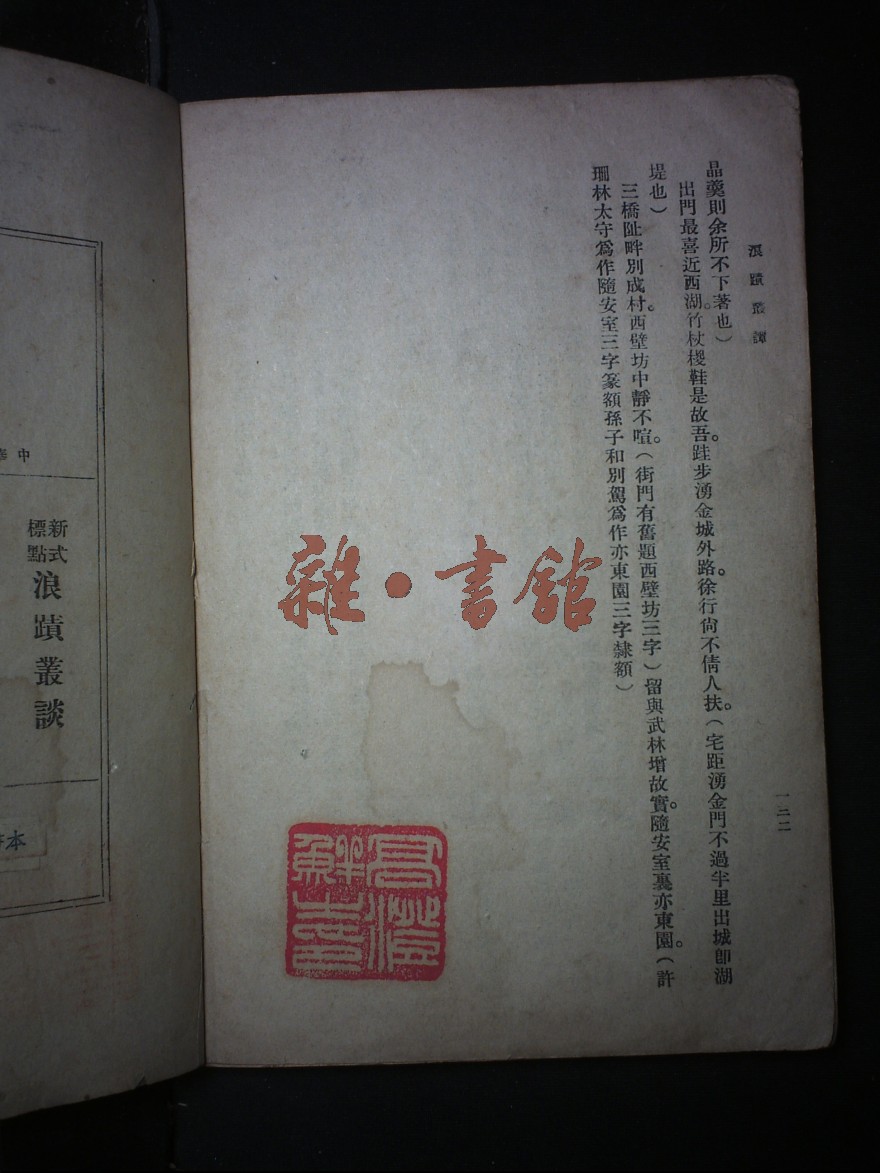 浪蹟叢譚
一三二
晶羹則余所不下著也）
出門最喜近西湖。竹杖椶鞋是故吾。跬步湧金城外路。徐行尙不倩人扶。（宅距湧金門不過半里出城卽湖
堤也）
三橋阯畔別成村。西壁坊中靜不喧。（街門有舊題西壁坊三字）留與武林增故實。隨安室裏亦東園。（許
珊林太守爲作隨安室三字篆額孫子和別駕爲作亦東園三字隸額）
雜·書館
新式
標點
浪蹟叢談
本
中